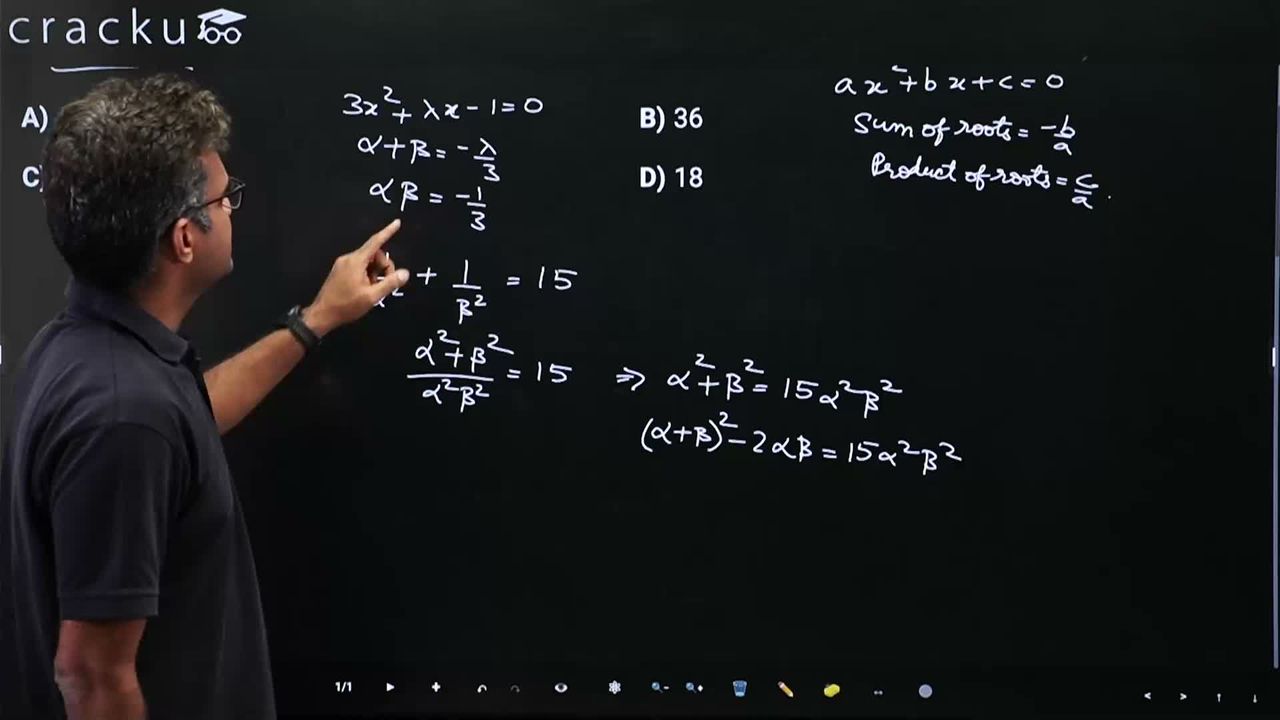 cracku
A)
B) 36
C)
D) 18
3x² + λx - 1 = 0
α + β = -λ/3
αβ = -1/3
+ 1/β² = 15
α² + β² / α²β² = 15 ⇒ α² + β² = 15α²β²
(α+β)² - 2αβ = 15α²β²
ax² + bx + c = 0
Sum of roots = -b/a
Product of roots = c/a.
1/1